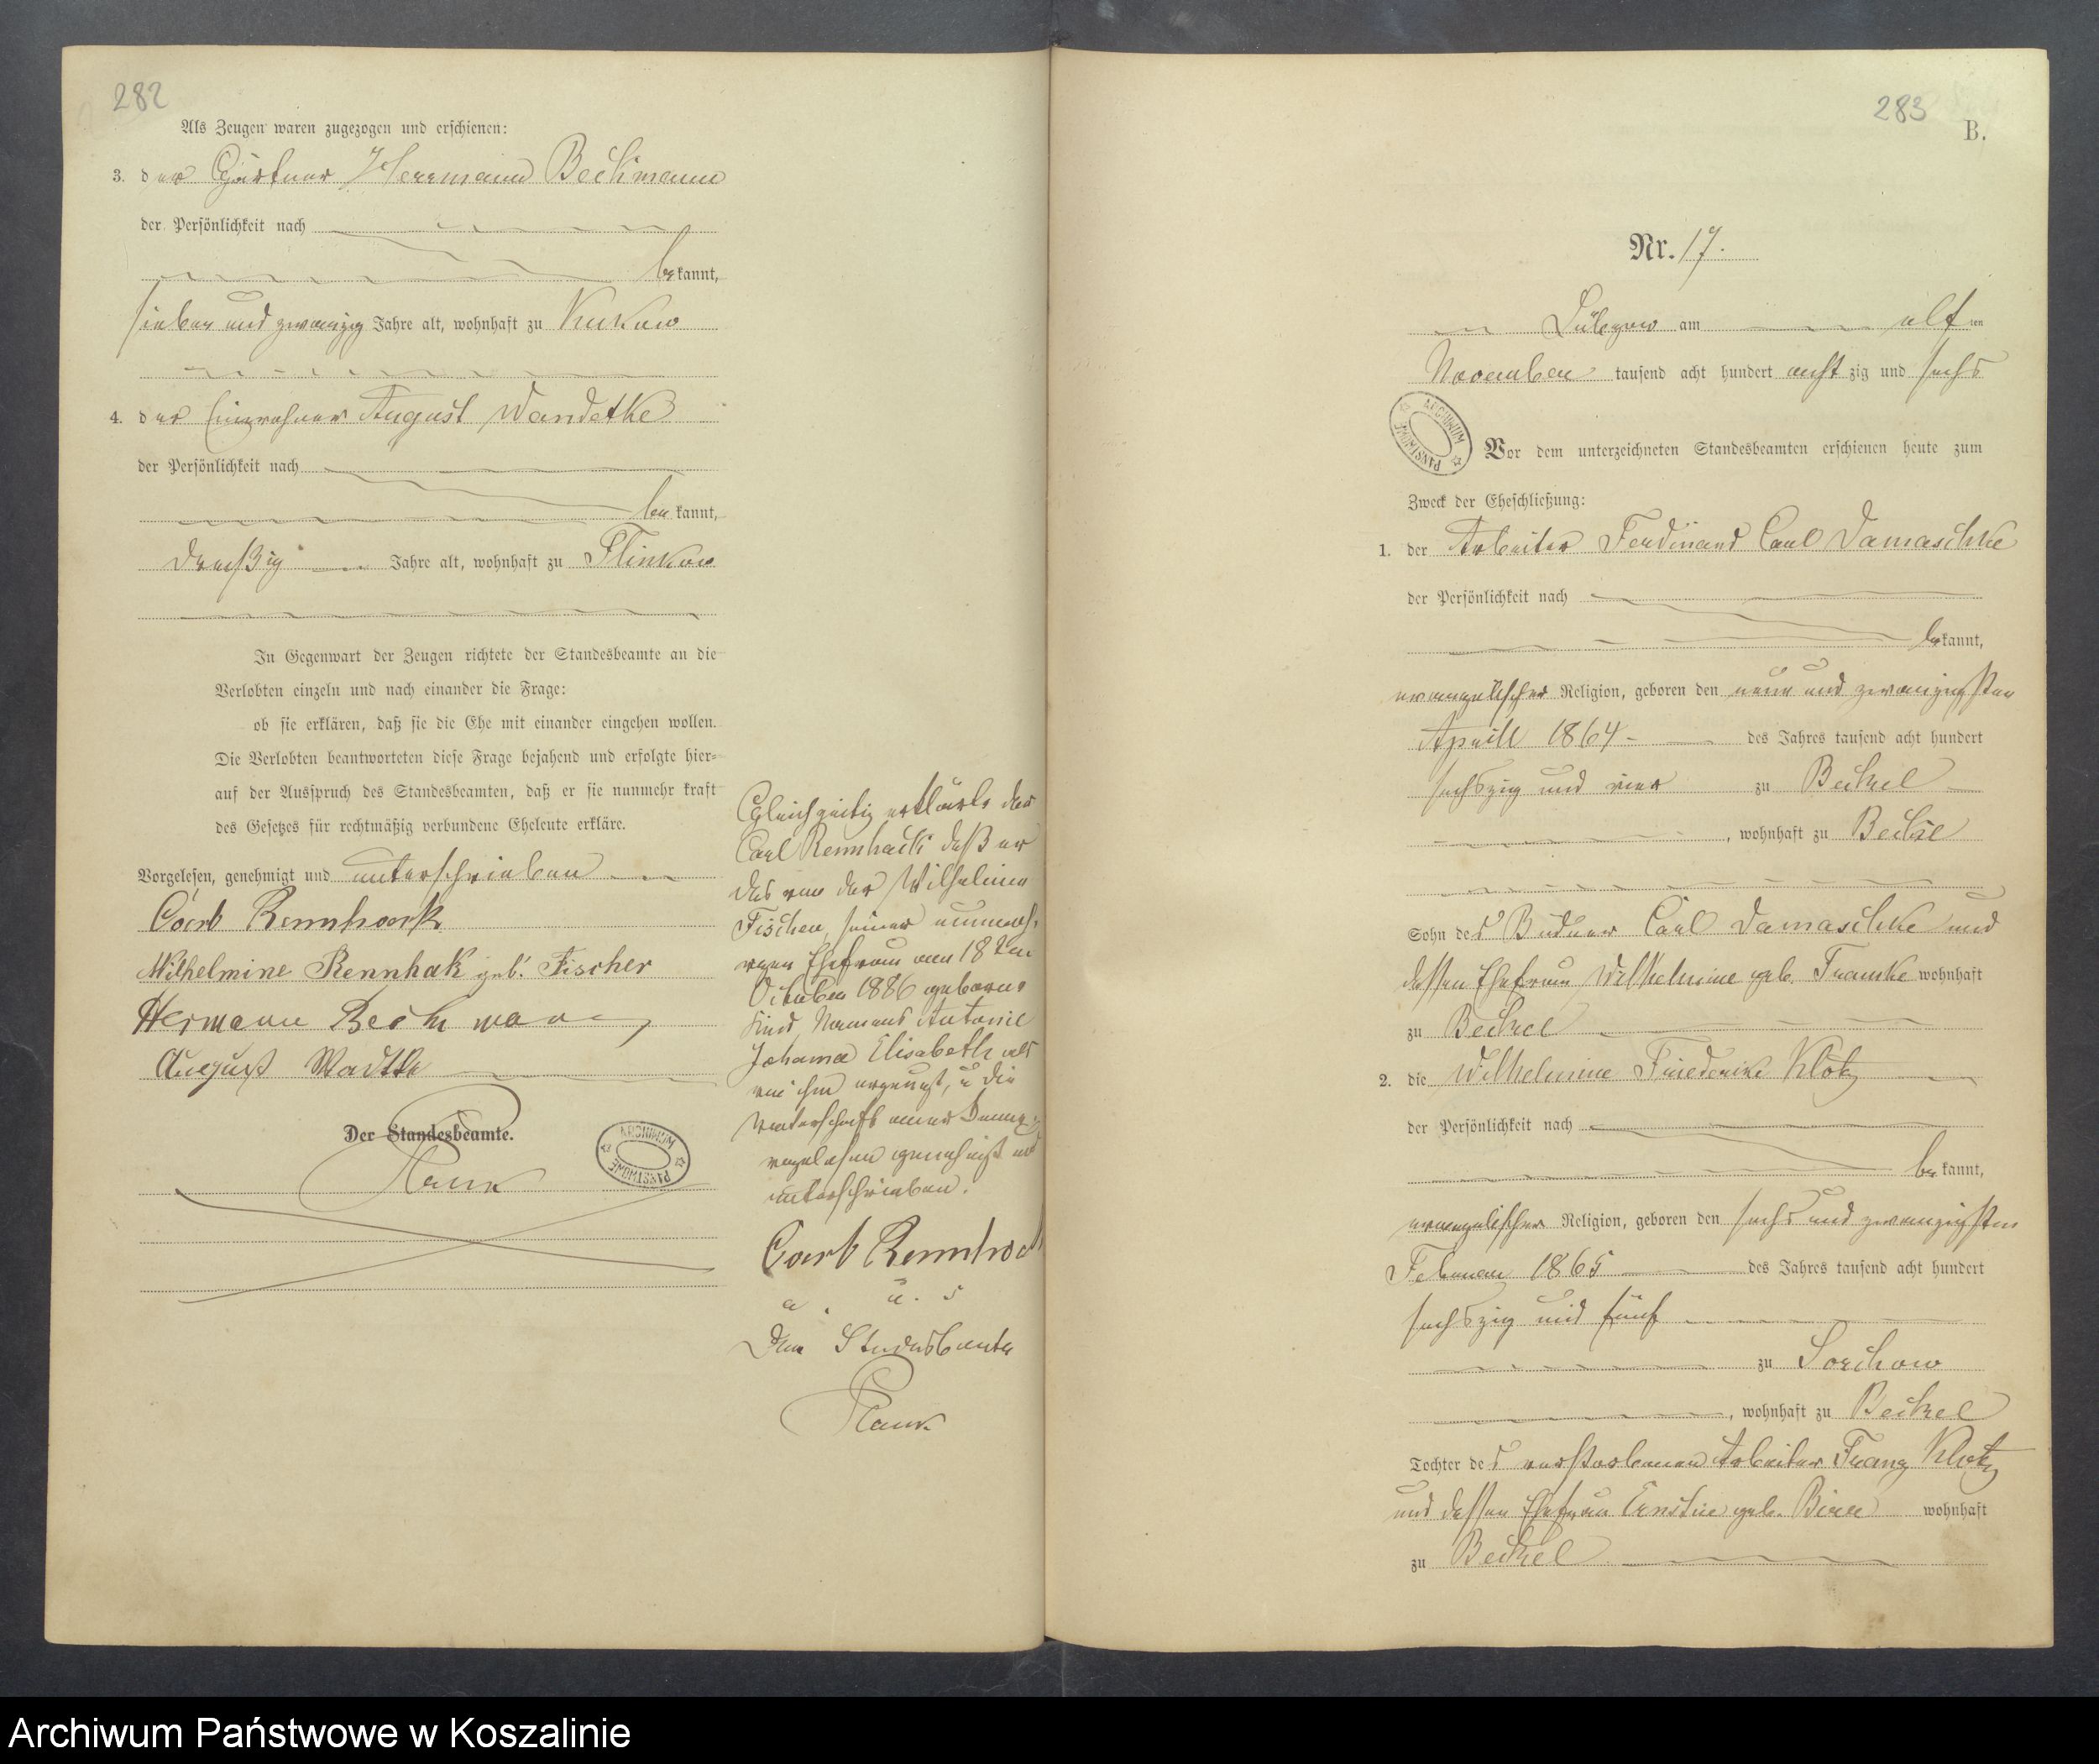 282
Als Zeugen waren zugezogen und erschienen:
3. der Gärtner Herrmann Beckmann
der Persönlichkeit nach
bekannt,
sieben und zwanzig Jahre alt, wohnhaft zu Kukow
4. der Einwohner August Wandetke
der Persönlichkeit nach
bekannt,
dreißig Jahre alt, wohnhaft zu Flinkow
In Gegenwart der Zeugen richtete der Standesbeamte an die
Verlobten einzeln und nach einander die Frage:
ob sie erklären, daß sie die Ehe mit einander eingehen wollen.
Die Verlobten beantworteten diese Frage bejahend und erfolgte hier-
auf der Ausspruch des Standesbeamten, daß er sie nunmehr kraft
des Gesetzes für rechtmäßig verbundene Eheleute erkläre.
Vorgelesen, genehmigt und unterschrieben
Carl Rennhack
Wilhelmine Rennhak geb. Fischer
Hermann Beckmann
August
Der Standesbeamte.
ARCHIWUM PAŃSTWOWE
Gleichzeitig erklärte der
Carl Rennhack daß er
das von der Wilhelmine
Fischer, seiner nunmeh-
rigen Ehefrau am 18ten
Oktober 1886 geborene
Kind Namens Antonie
Johanna Elisabeth als
von ihm erzeugt, u die
Vaterschaft
vorgelesen genehmigt und
unterschrieben.
Carl Rennhack
Der Standesbeamte
283
B.
Nr. 17.
Lübzow am elf ten
November tausend acht hundert achtzig und sechs
ARCHIWUM PAŃSTWOWE
Vor dem unterzeichneten Standesbeamten erschienen heute zum
Zweck der Eheschließung:
1. der Arbeiter Ferdinand Carl Damaschke
der Persönlichkeit nach
bekannt,
evangelischer Religion, geboren den neun und zwanzigsten
Aprill 1864 des Jahres tausend acht hundert
sechszig und vier zu Beckel
, wohnhaft zu Beckel
Sohn des Büdner Carl Damaschke und
dessen Ehefrau Wilhelmine geb. Franke wohnhaft
zu Beckel
2. die Wilhelmine Friederike Klotz
der Persönlichkeit nach
bekannt,
evangelischer Religion, geboren den sechs und zwanzigsten
Februar 1865 des Jahres tausend acht hundert
sechszig und fünf
zu Sorchow
, wohnhaft zu Beckel
Tochter des verstorbenen Arbeiter Franz Klotz
und dessen Ehefrau Ernstine geb. wohnhaft
zu Beckel
Archiwum Państwowe w Koszalinie